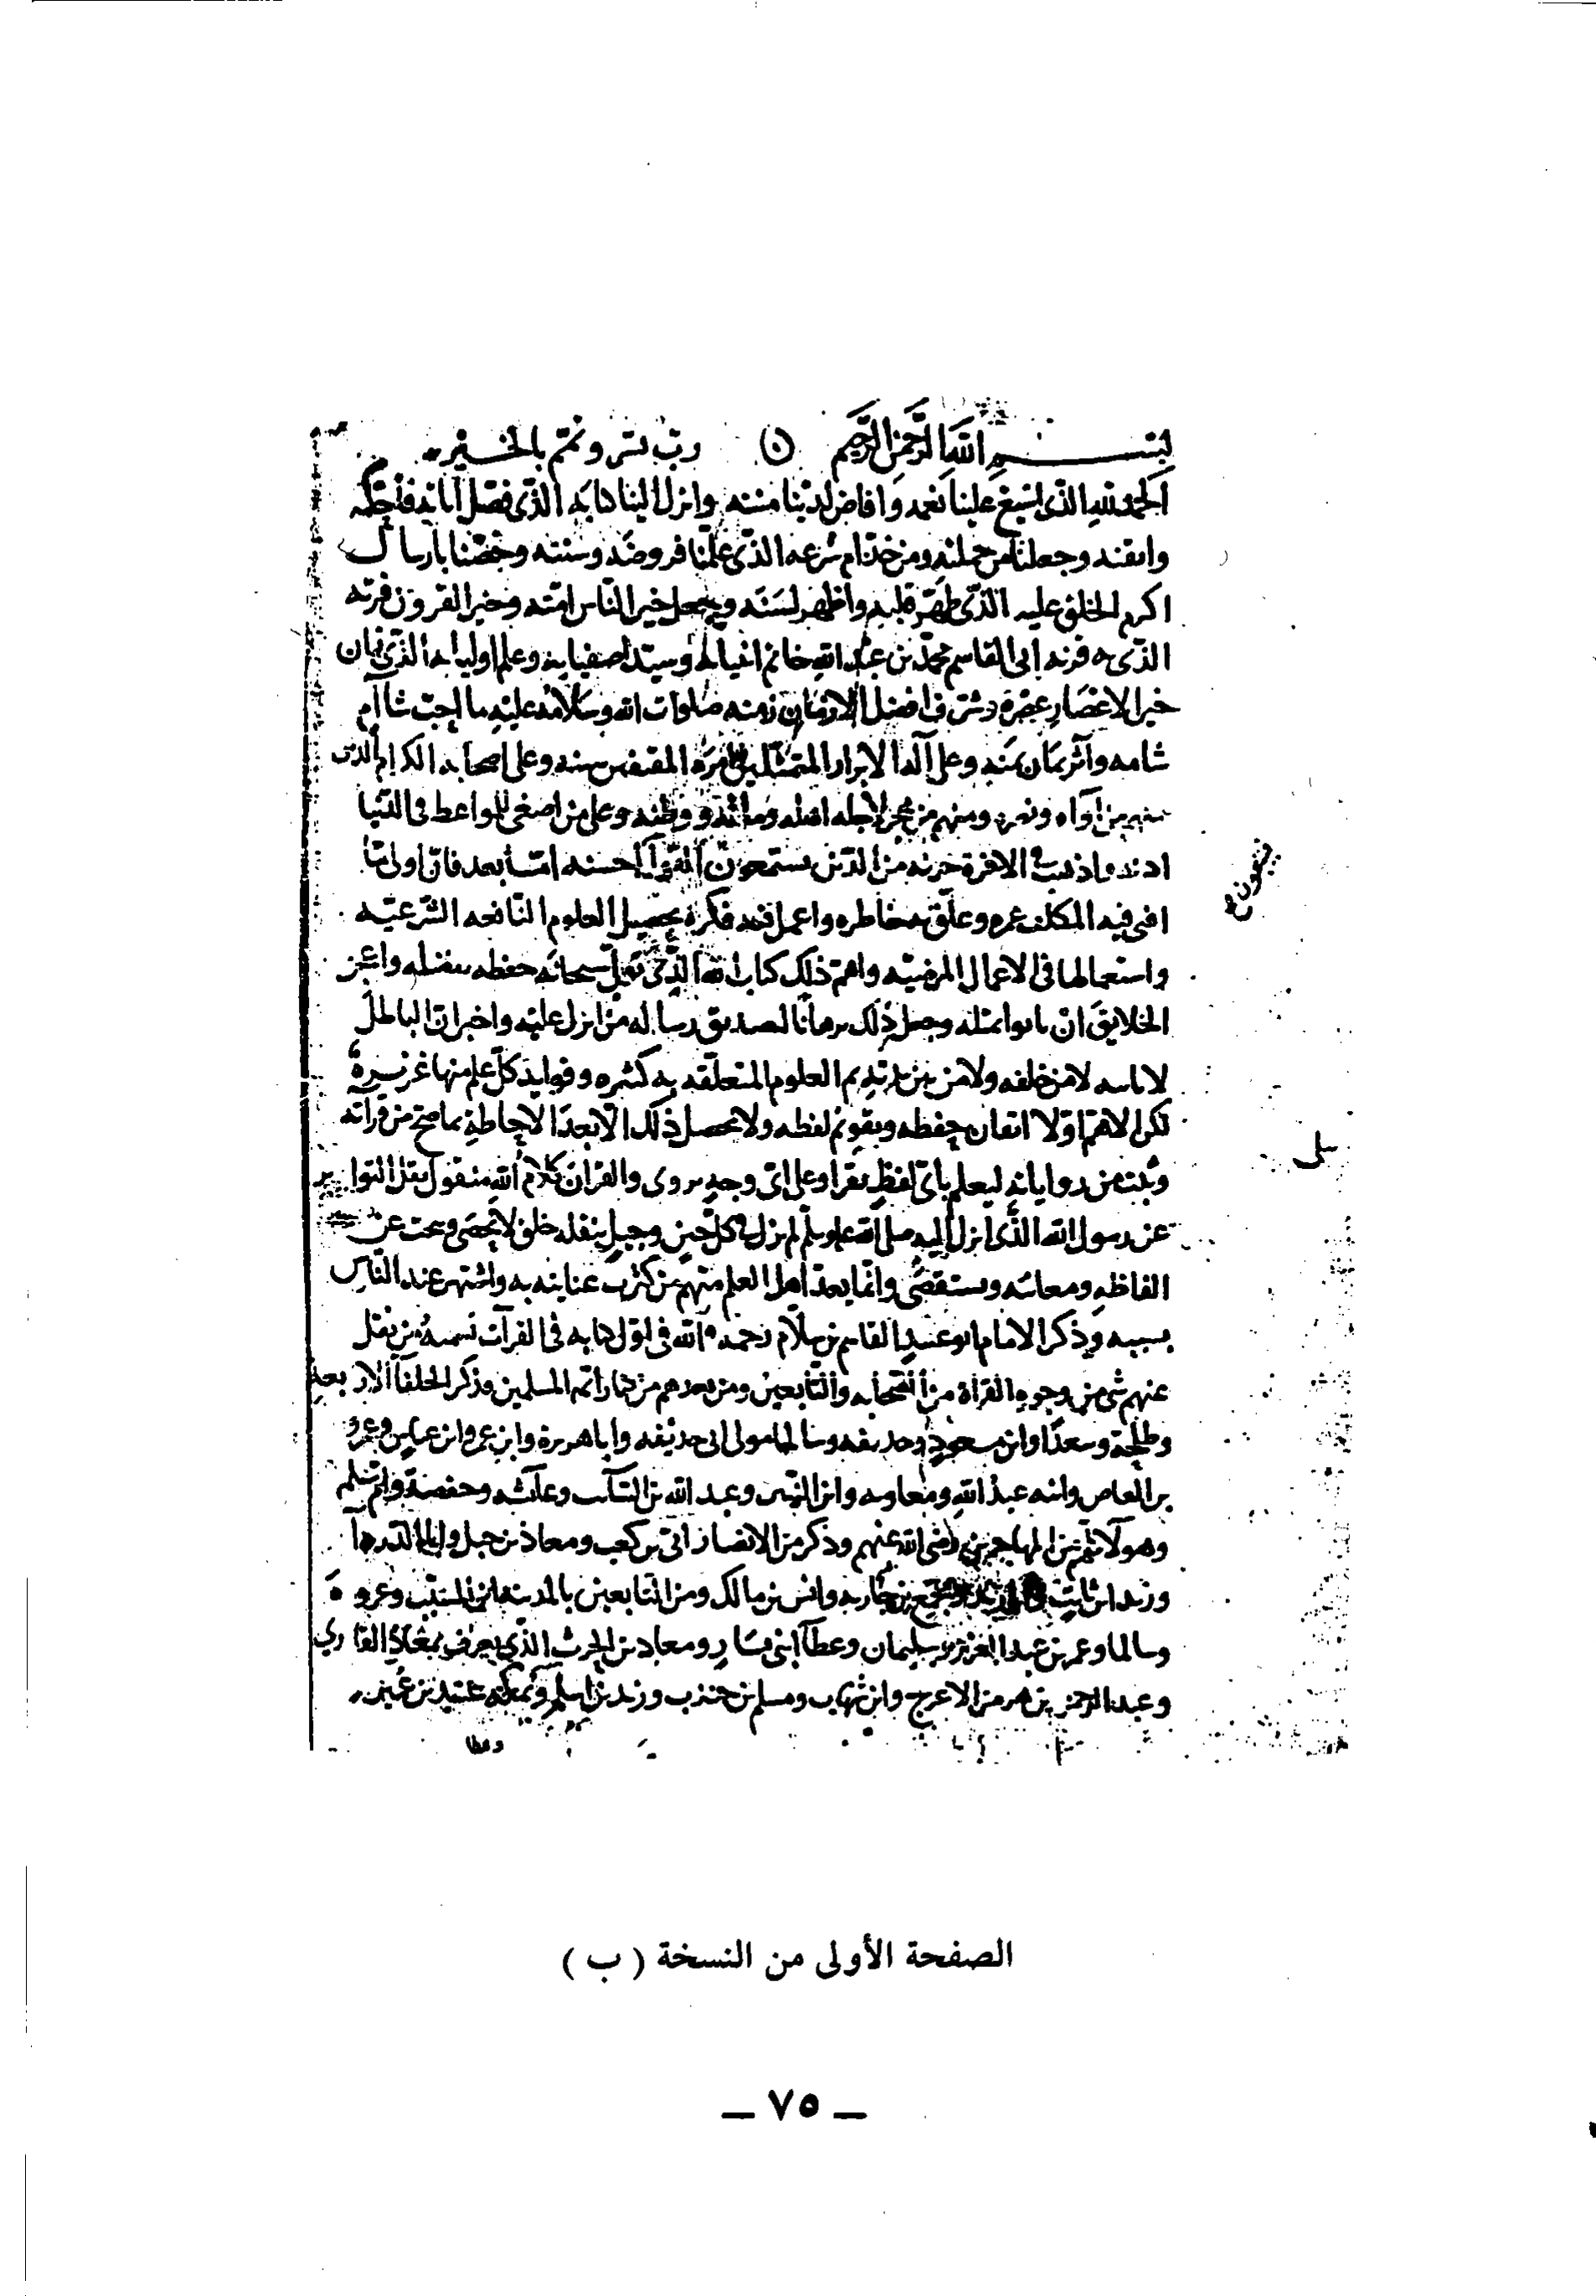 بسم الله الرحمن الرحيم رب يسر وتمم بالخير
الحمد لله الذي اسبغ علينا نعمه وافاض لدينا مننه وانزل الينا كتابه الذي فصل آياته فاحكمه
واتقنه وجعلنا من حملته ومن خدام شرعه الذي علمنا فروضه وسننه وخصنا بارسال
اكرم الخلق عليه الذي طهر قلبه واظهر لسنه وجعل خير الناس امته وخير القرون قرنه
الذي قرنه ابي القاسم محمد بن عبد الله خاتم انبيائه وسيد اصفيايه وعلم اوليايه الذي كان
خير الاعصار عصره في افضل الازمان زمنه صلوات الله وسلامه عليه ما احب شاآم
شامه وآثر يمان يمنه وعلى آله الابرار الممتثلين امره المقتفين سننه وعلى اصحابه الكرام الذين
منهم من آواه ونصره ومنهم من هجر لاجله اهله وماله ووطنه وعلى من اصغى للمواعظ في الدنيا
اذنه واذهب في الاخرة حزنه من الذين يستمعون القول احسنه امّا بعد فان اولى ما
افنى فيه المكلف عمره وعلق به خاطره واعمل فيه فكره تحصيل العلوم النافعه الشرعيه
واستعمالها في الاعمال المرضيه واهم ذلك كتاب الله الذي تولى سبحانه حفظه بفضله واعجز
الخلايق ان ياتوا بمثله وجعل ذلك برهانا لصديق رسالة من انزل عليه واخبر ان الباطل
لا ياتيه لا من خلفه ولا من بين يديه ثم العلوم المتعلقه به كثيره وفوايد كل علم منها غزيرة
لكن الاهم اولا اتقان حفظه وتقويم لفظه ولا يحصل ذلك الا بعد الاحاطة بما صح من قرآته
وثبت من رواياته ليعلم باي لفظ يقرا وعلى اي وجه يروى والقرآن كلام الله منقول نقل التواتر
عن رسول الله الذي انزل اليه صلى الله عليه وسلم لم يزل في كل حين وجيل ينقله خلق لا يحصى ويبحث عن
الفاظه ومعانيه ويستقصي وانما يعد اهل العلم منهم من كثرت عنايته به واشتهر عند الناس
بسببه وذكر الامام ابو عبيد القاسم بن سلام رحمه الله في اول كتابه في القرآت تسمية من نقل
عنهم شي من وجوه القرأة من الصحابه والتابعين ومن بعدهم من كبار ائمة المسلمين فذكر الخلفا الاربعة
وطلحة وسعدا وابن مسعود وحذيفه وسالما مولى ابي حذيفه وابا هريرة وابن عمر وابن عباس وعمرو
بن العاص وابنه عبد الله ومعاويه وابن الزبير وعبد الله بن السآئب وعآئشه وحفصة وام سلمة
وهولآء كلهم من المهاجرين رضي الله عنهم وذكر من الانصار ابي بن كعب ومعاذ بن جبل وابا الدردآ
وزيد بن ثابت ومجمع بن جاريه وانس بن مالك ومن التابعين بالمدينه ابن المسيب وعروة
وسالما وعمر بن عبد العزيز وسليمان وعطآ ابني يسار ومعاذ بن الحرث الذي يعرف بمعاذ القاري
وعبد الرحمن بن هرمز الاعرج وابن شهاب ومسلم بن جندب وزيد بن اسلم وبمكة عبيد بن عمير
وعطا
الصفحة الأولى من النسخة (ب)
— ٧٥ —